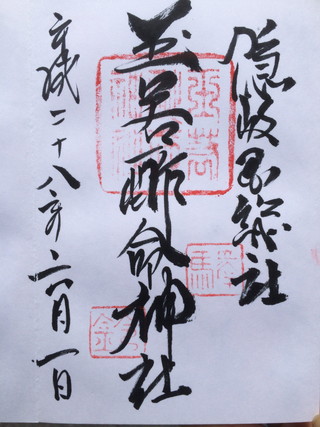 隠岐国総社
玉若酢命神社
平成二十八年六月一日